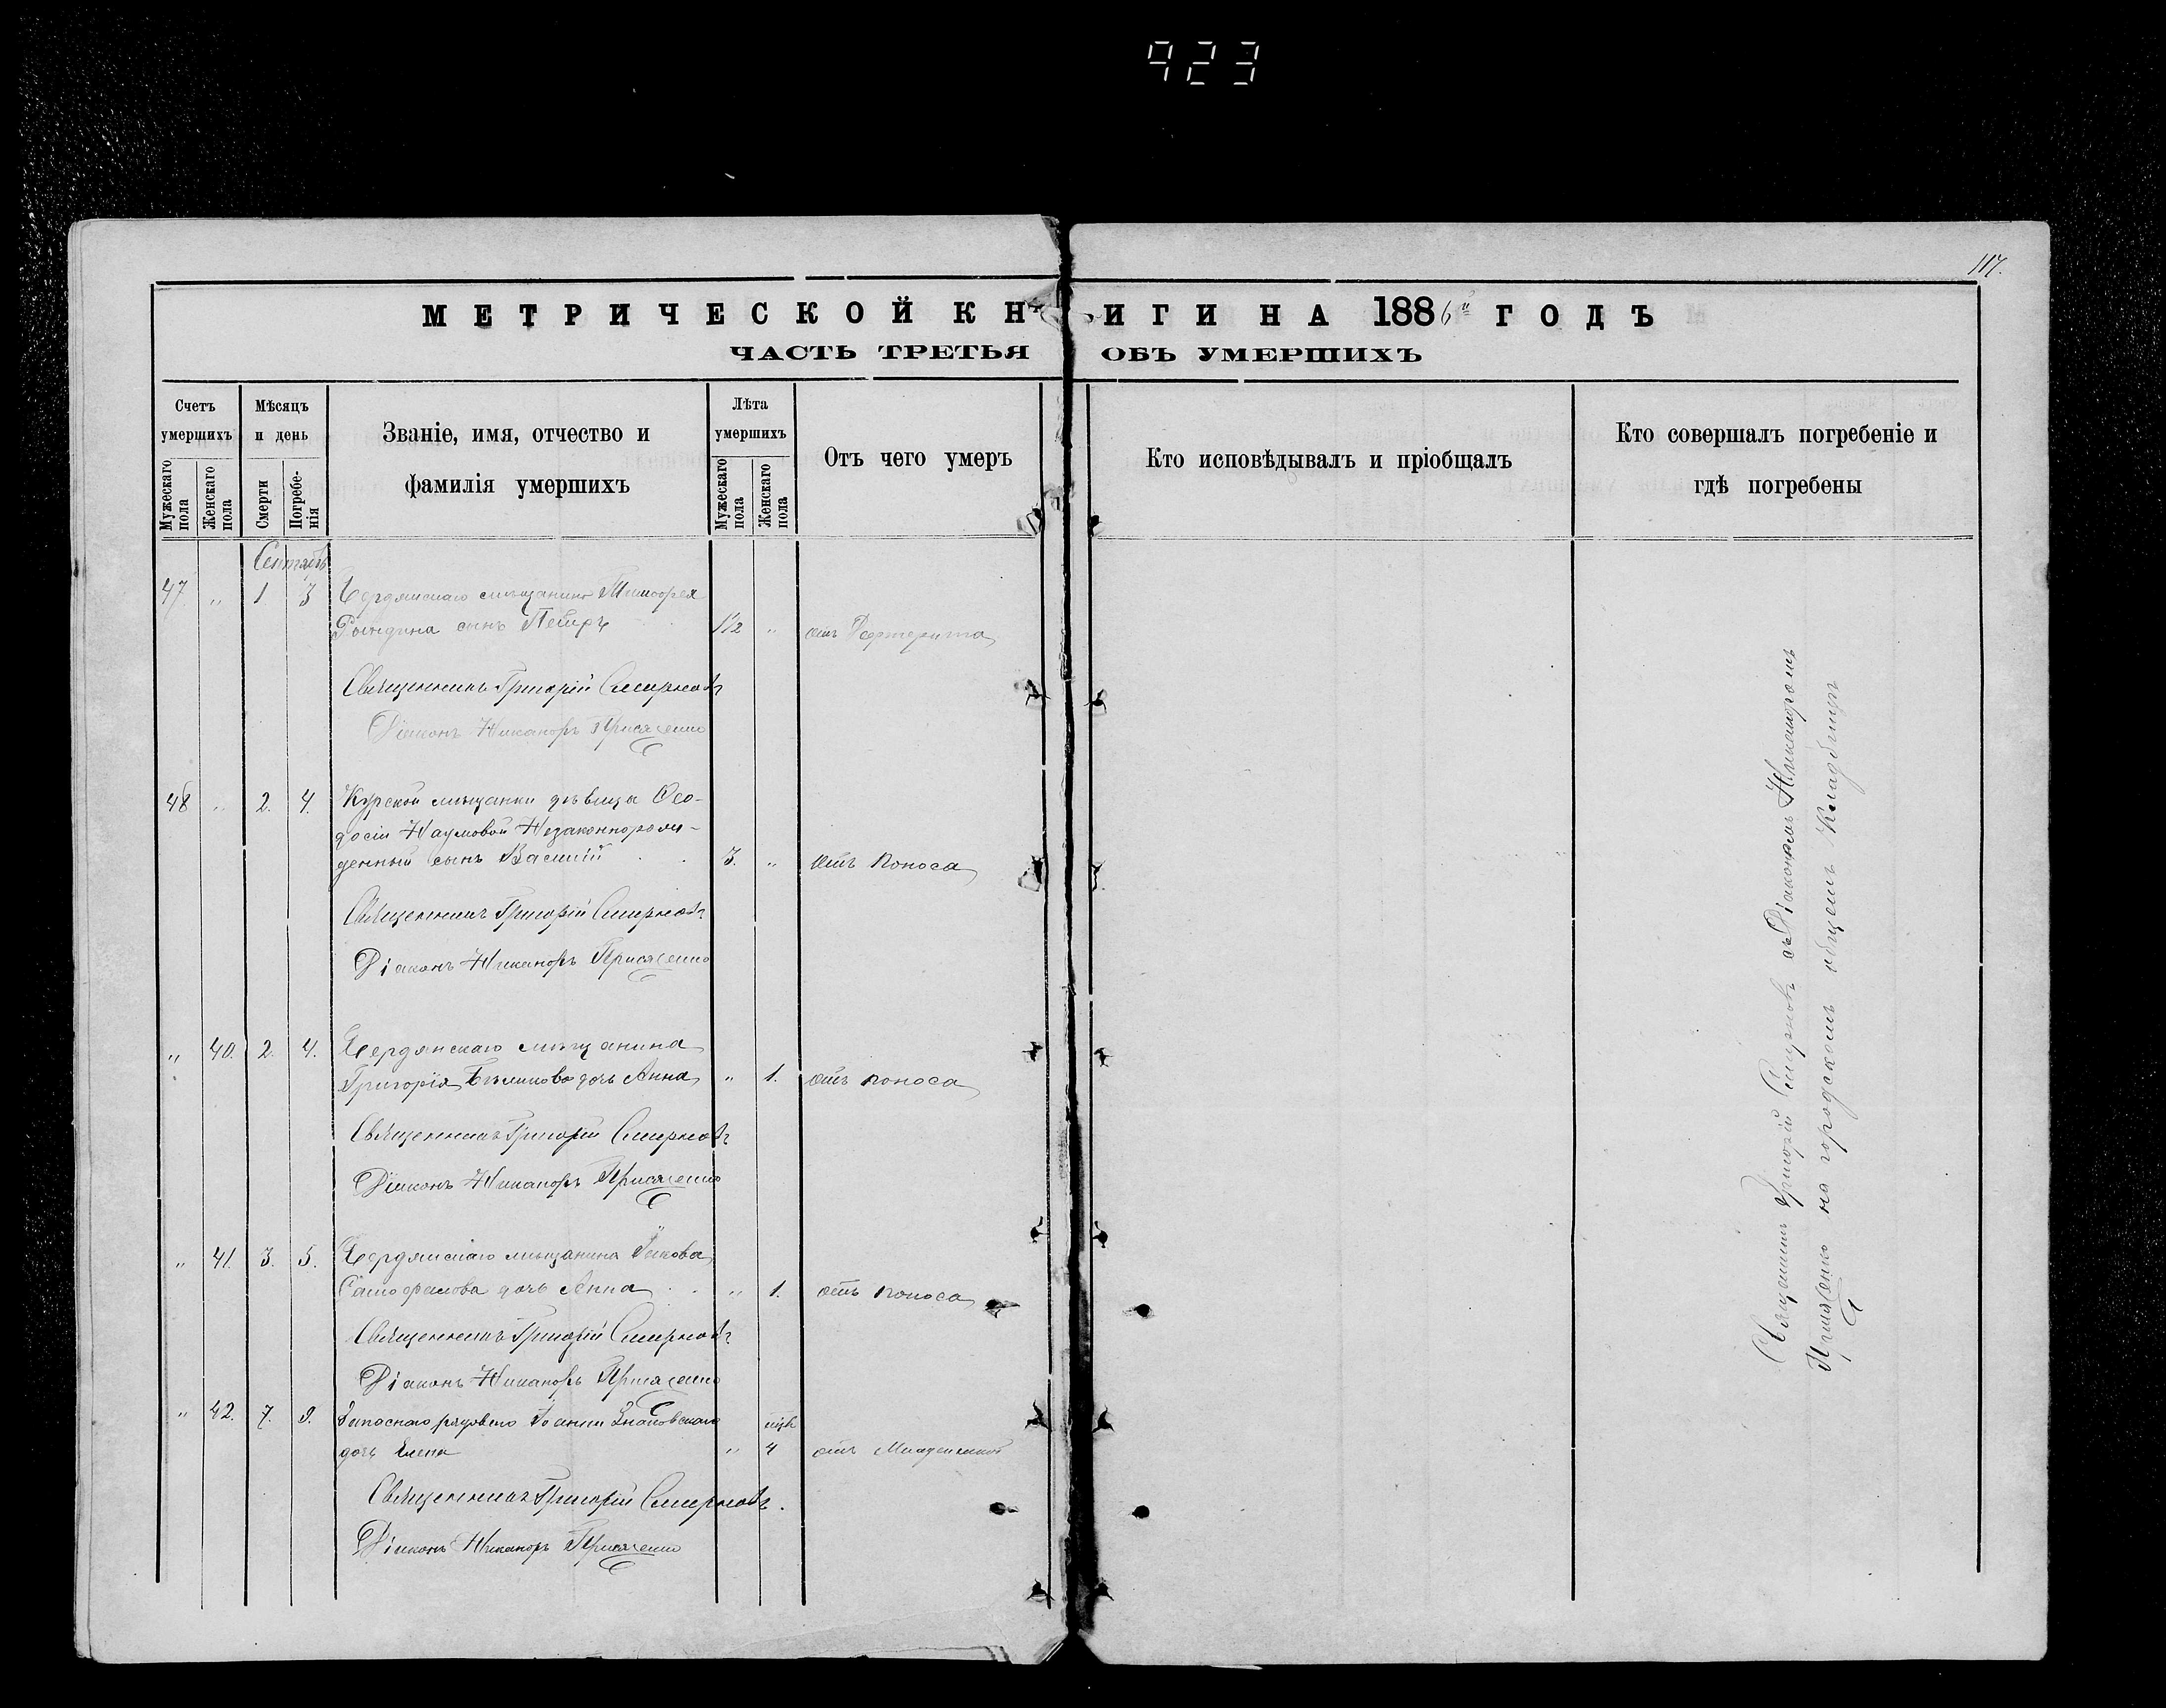 423
117.
МЕТРИЧЕСКОЙ КНИГИ НА 1886й ГОДЪ
ЧАСТЬ ТРЕТЬЯ ОБЪ УМЕРШИХЪ
Счетъ умершихъ
Мужескаго пола
Женскаго пола
Мѣсяцъ и день
Смерти
Погребенія
Званіе, имя, отчество и
фамилія умершихъ
Лѣта умершихъ
Мужескаго пола
Женскаго пола
Отъ чего умеръ
Кто исповѣдывалъ и пріобщалъ
Кто совершалъ погребеніе и
гдѣ погребены
Сентябрь
47 " 1 3 Бердянскаго мѣщанина Тимофея
сынъ Петръ 1 1/2 " отъ Дефтерита
Священникъ Григорій Смирновъ
Діаконъ Никаноръ Присяженко
48 " 2. 4. Курской мѣщанки дѣвицы Өео-
досіи Наумовой Незаконнорож-
денный сынъ Василій 3. " отъ поноса
Священникъ Григорій Смирновъ
Діаконъ Никаноръ Присяженко
" 40. 2. 4. Бердянскаго мѣщанина
Григорія дочь Анна " 1. отъ поноса
Священникъ Григорій Смирновъ
Діаконъ Никаноръ Присяженко
" 41. 3. 5. Бердянскаго мѣщанина Іакова
дочь Анна " 1. отъ поноса
Священникъ Григорій Смирновъ
Діаконъ Никаноръ Присяженко
" 42. 7. 9. Запаснаго рядового Іоанна
дочь Елена " 4 отъ Младенческой
Священникъ Григорій Смирновъ.
Діаконъ Никаноръ Присяженко
Священникъ Григорій Смирновъ съ Діакономъ Никаноромъ
Присяженко на городскомъ общемъ Кладбищѣ